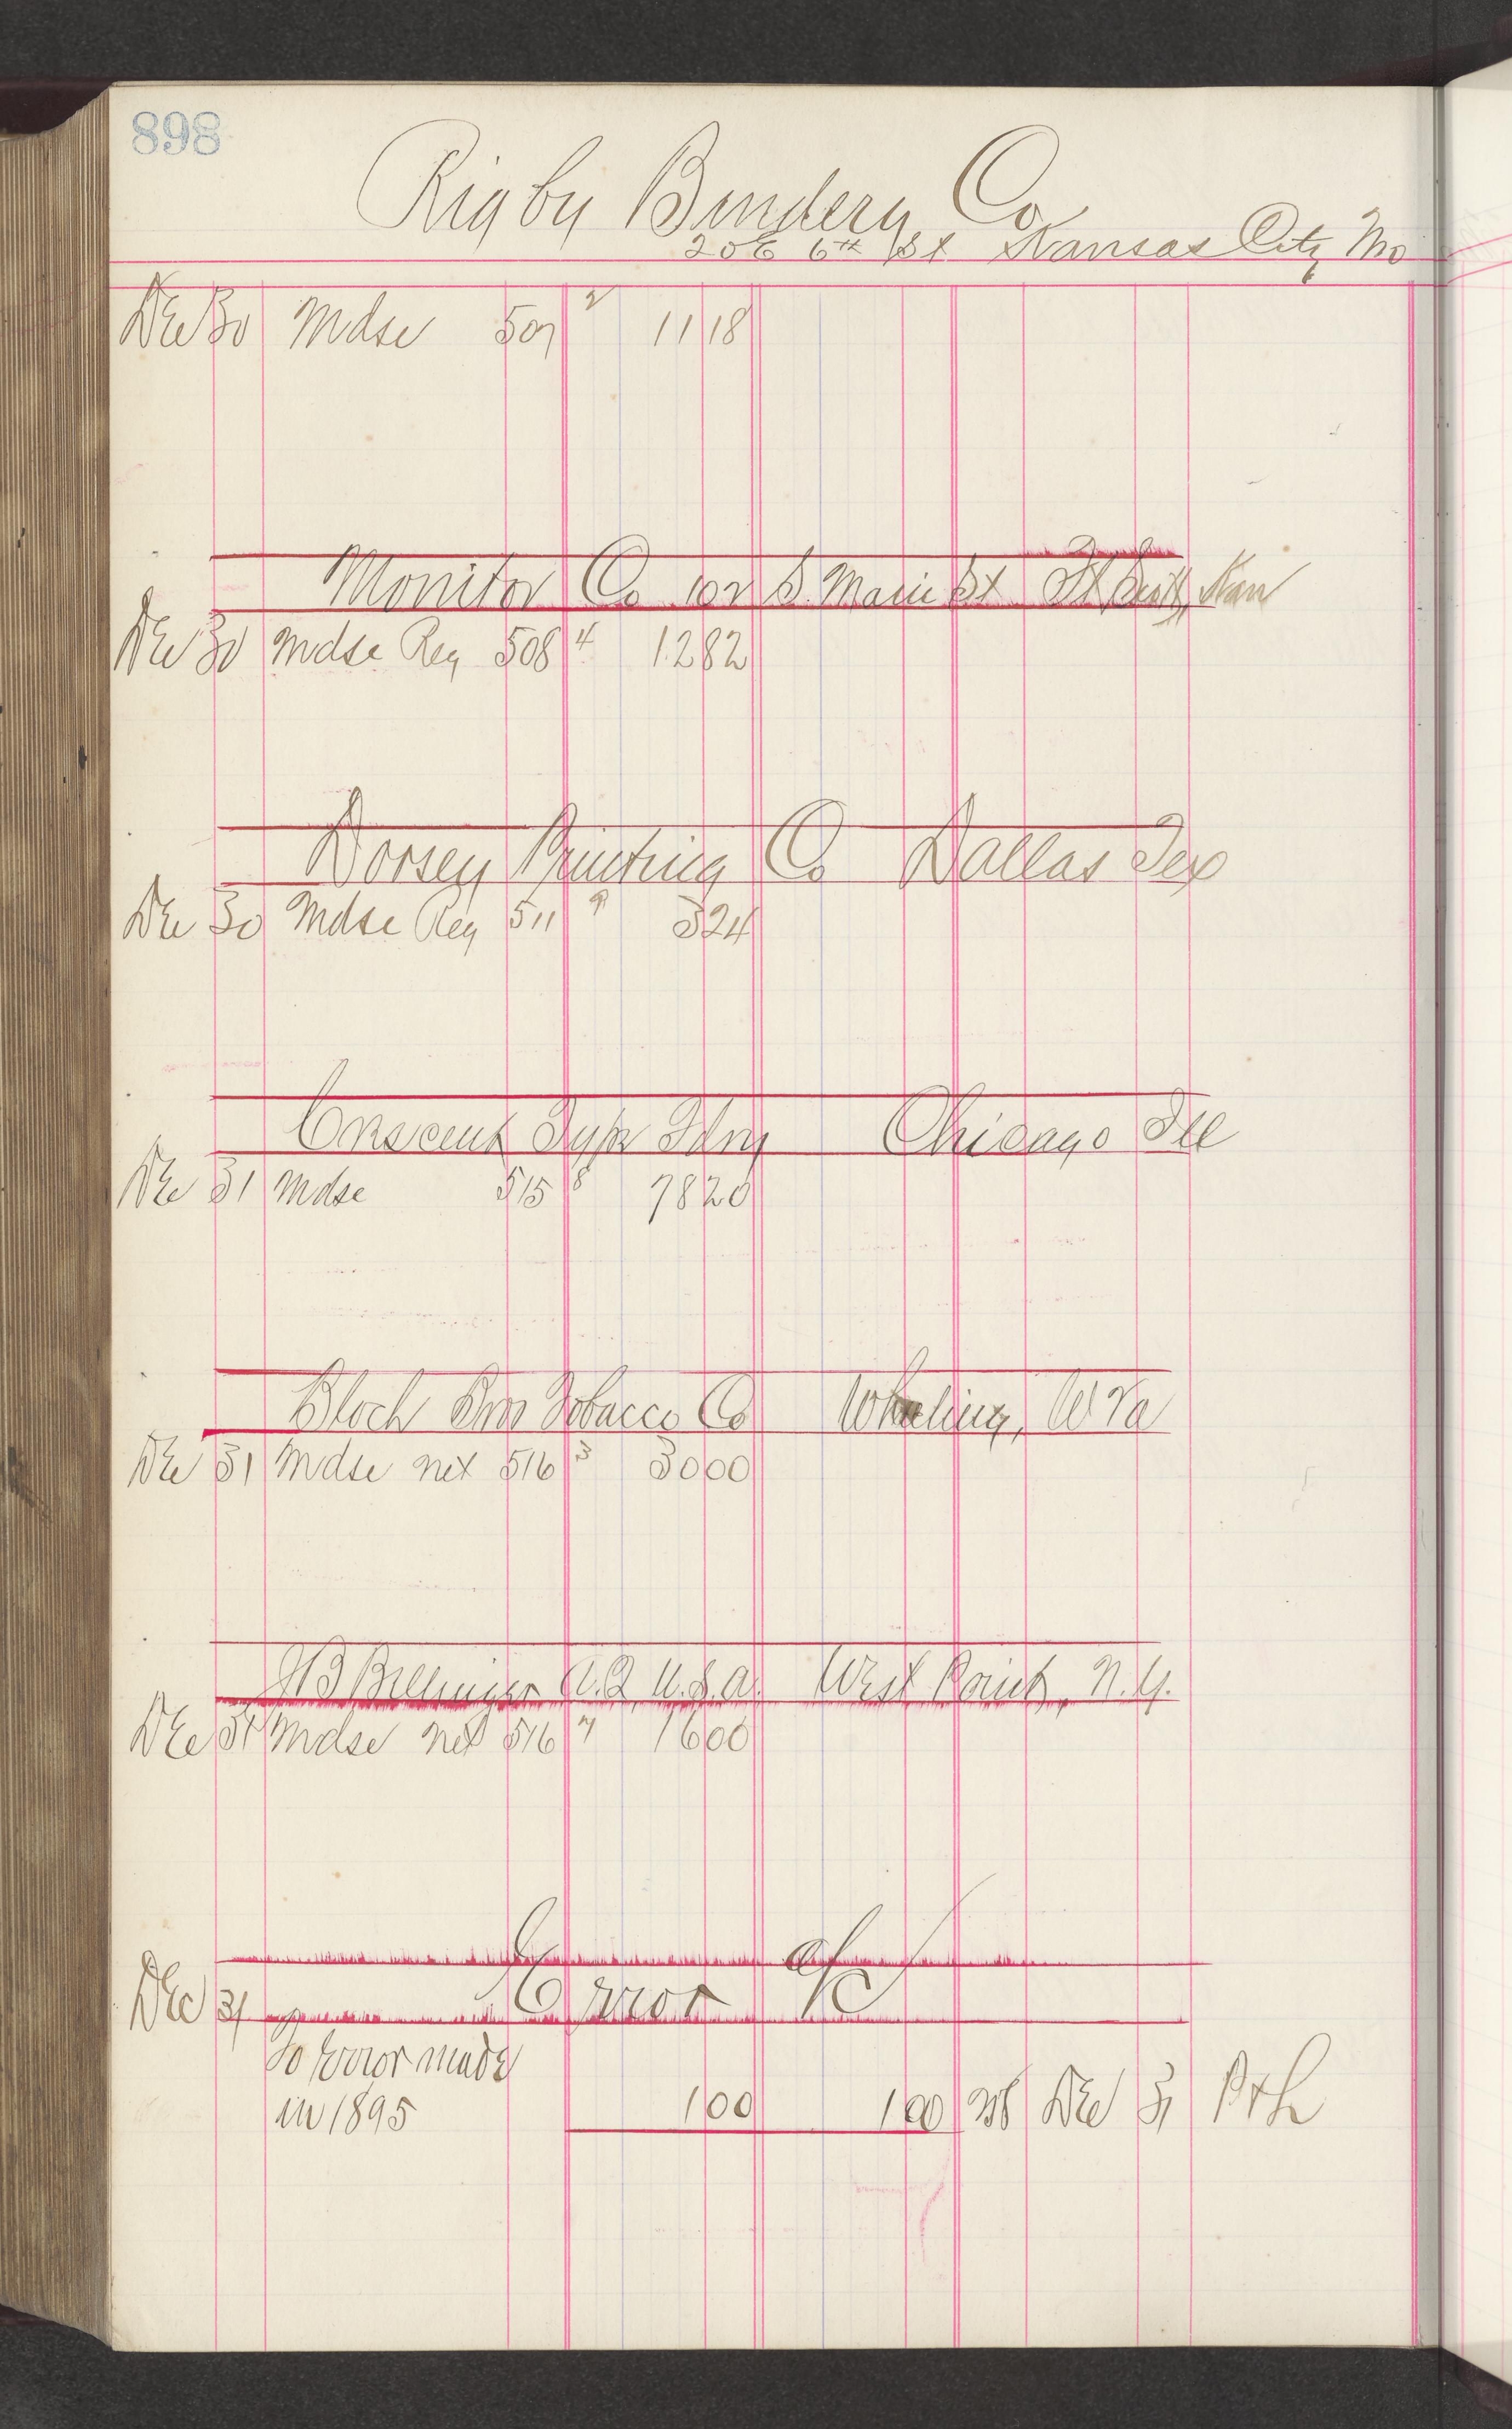 898
Rigby Bindery Co
206 6th St Kansas City Mo
Dec 30 Mdse 507 2 11 18
Monitor Co 102 S. Main St Ft Scott, Kan
Dec 30 Mdse Reg 508 4 12 82
Dorsey Printing Co Dallas Tex
Dec 30 Mdse Reg 511 9 3 24
Crescent Type Fdry Chicago Ill
Dec 31 Mdse 515 8 78 20
Bloch Bros Tobacco Co Wheeling, W Va
Dec 31 Mdse net 516 3 30 00
J B Bellinger A.Q. U.S.A. West Point, N.Y.
Dec 31 Mdse net 516 7 16 00
Error a/c
Dec 31
To Error made
in 1895 1 00 1 00 Dec 31 P&L